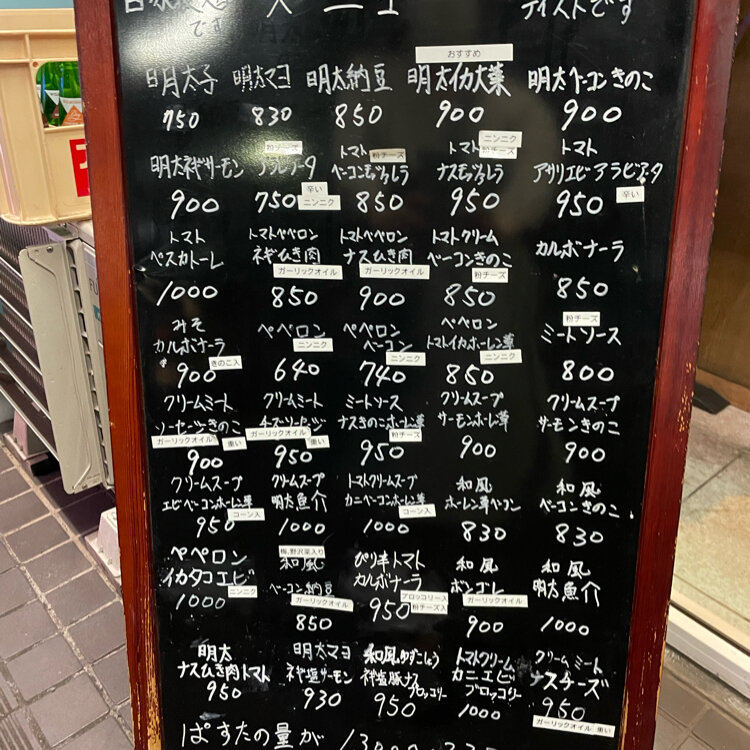 ティストです
です
メニュー
おすすめ
明太子 明太マヨ 明太納豆 明太イカ大葉 明太ベーコンきのこ
750 830 850 900 900
粉チーズ トマト 粉チーズ トマト ニンニク 粉チーズ トマト
明太ネギサーモン アラビアータ ベーコンモッツァレラ ナスモッツァレラ アサリエビアラビアータ
900 750 辛い ニンニク 850 950 950 辛い
トマト トマトペペロン トマトペペロン トマトクリーム カルボナーラ
ペスカトーレ ネギひき肉 ナスひき肉 ベーコンきのこ
ガーリックオイル ガーリックオイル 粉チーズ
1000 850 900 850 850
みそ ペペロン ペペロン ペペロン 粉チーズ
カルボナーラ ニンニク ベーコン トマトイカホーレン草 ミートソース
きのこ入 ニンニク ニンニク
900 640 740 850 800
クリームミート クリームミート ミートソース クリームスープ クリームスープ
ソーセージきのこ チーズソーセージ ナスきのこホーレン草 サーモンホーレン草 サーモンきのこ
ガーリックオイル 重い ガーリックオイル 重い 粉チーズ
900 950 950 900 900
クリームスープ クリームスープ トマトクリームスープ 和風 和風
エビベーコンホーレン草 明太魚介 カニベーコンホーレン草 ホーレン草ベーコン ベーコンきのこ
コーン入 コーン入
950 1000 1000 830 830
ペペロン 梅、野沢菜入り 和風 ぴり辛トマト 和風 和風
イカタコエビ ベーコン納豆 カルボナーラ ボンゴレ 明太魚介
ニンニク ガーリックオイル ブロッコリー入 粉チーズ入 ガーリックオイル
1000 850 950 900 1000
明太 明太マヨ 和風ゆずこしょう トマトクリーム クリームミート
ナスひき肉トマト ネギ塩サーモン ネギ塩豚ナス カニエビ ナスチーズ
ブロッコリー ブロッコリー
950 930 950 1000 950
ガーリックオイル 重い
ぱすたの量が